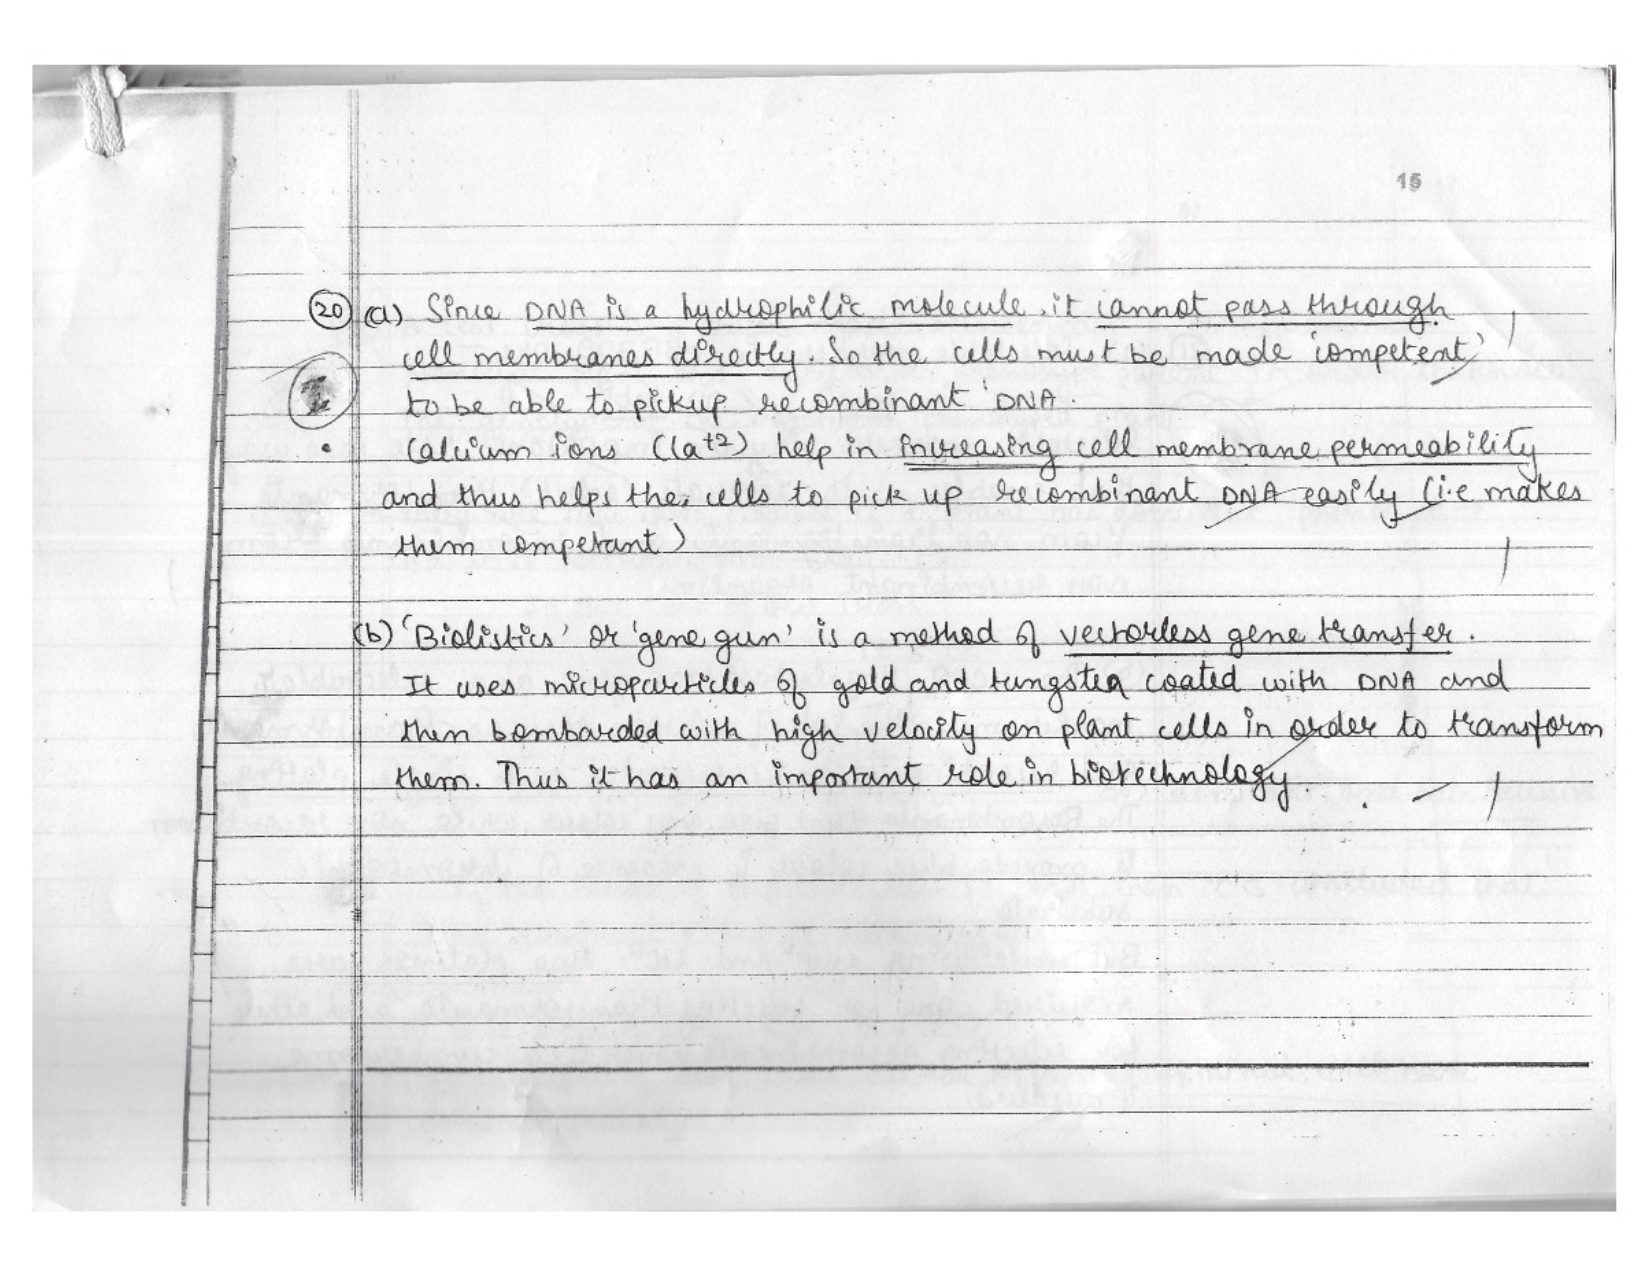 15
20 (a) Since DNA is a hydrophilic molecule, it cannot pass through
cell membranes directly. So the cells must be made 'competent'
to be able to pickup recombinant DNA.
• Calcium ions (Ca+2) help in increasing cell membrane permeability
and thus helps the cells to pick up recombinant DNA easily (i.e makes
them competant)
(b) 'Biolistics' or 'gene gun' is a method of vectorless gene transfer.
It uses microparticles of gold and tungsten coated with DNA and
then bombarded with high velocity on plant cells in order to transform
them. Thus it has an important role in biotechnology